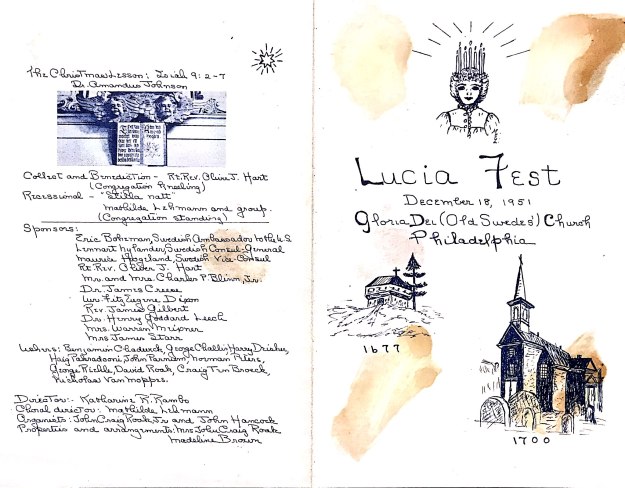 The Christmas Lesson: Isaiah 9:2-7
Dr. Amandus Johnson
Collect and Benediction - Rt. Rev. Oliver J. Hart
(Congregation Kneeling)
Recessional - "Stilla natt"
Mathilde Lehmann and group
(Congregation standing)
Sponsors:
Eric Boheman, Swedish Ambassador to the U.S.
Lennart Nylander, Swedish Consul-General
Swedish Vice-Consul
Rt. Rev. Oliver J. Hart
Mr. and Mrs. Charles P. Blinn, Jr.
Dr. James Creese
Mr. Fitz Eugene Dixon
Rev. James Gilbert
Dr. Henry Goddard Leach
Mrs. Warren Meixner
Mrs James Starr
Ushers: Benjamin Chadwick, George Challis, Harry Drisher,
Haig Pakradooni, John Parnum, Norman Peters,
George Rickle, David Roak, Craig Ten Broeck,
Nicholas Van Moppes.
Director: Katharine R. Rambo
Choral director: Mathilde Lehmann
Organists: John Craig Roak Jr and John Hancock
Properties and arrangements: Mrs John Craig Roak
Madeline Brown
Lucia Fest
December 18, 1951
Gloria Dei (Old Swedes') Church
Philadelphia
1677
1700